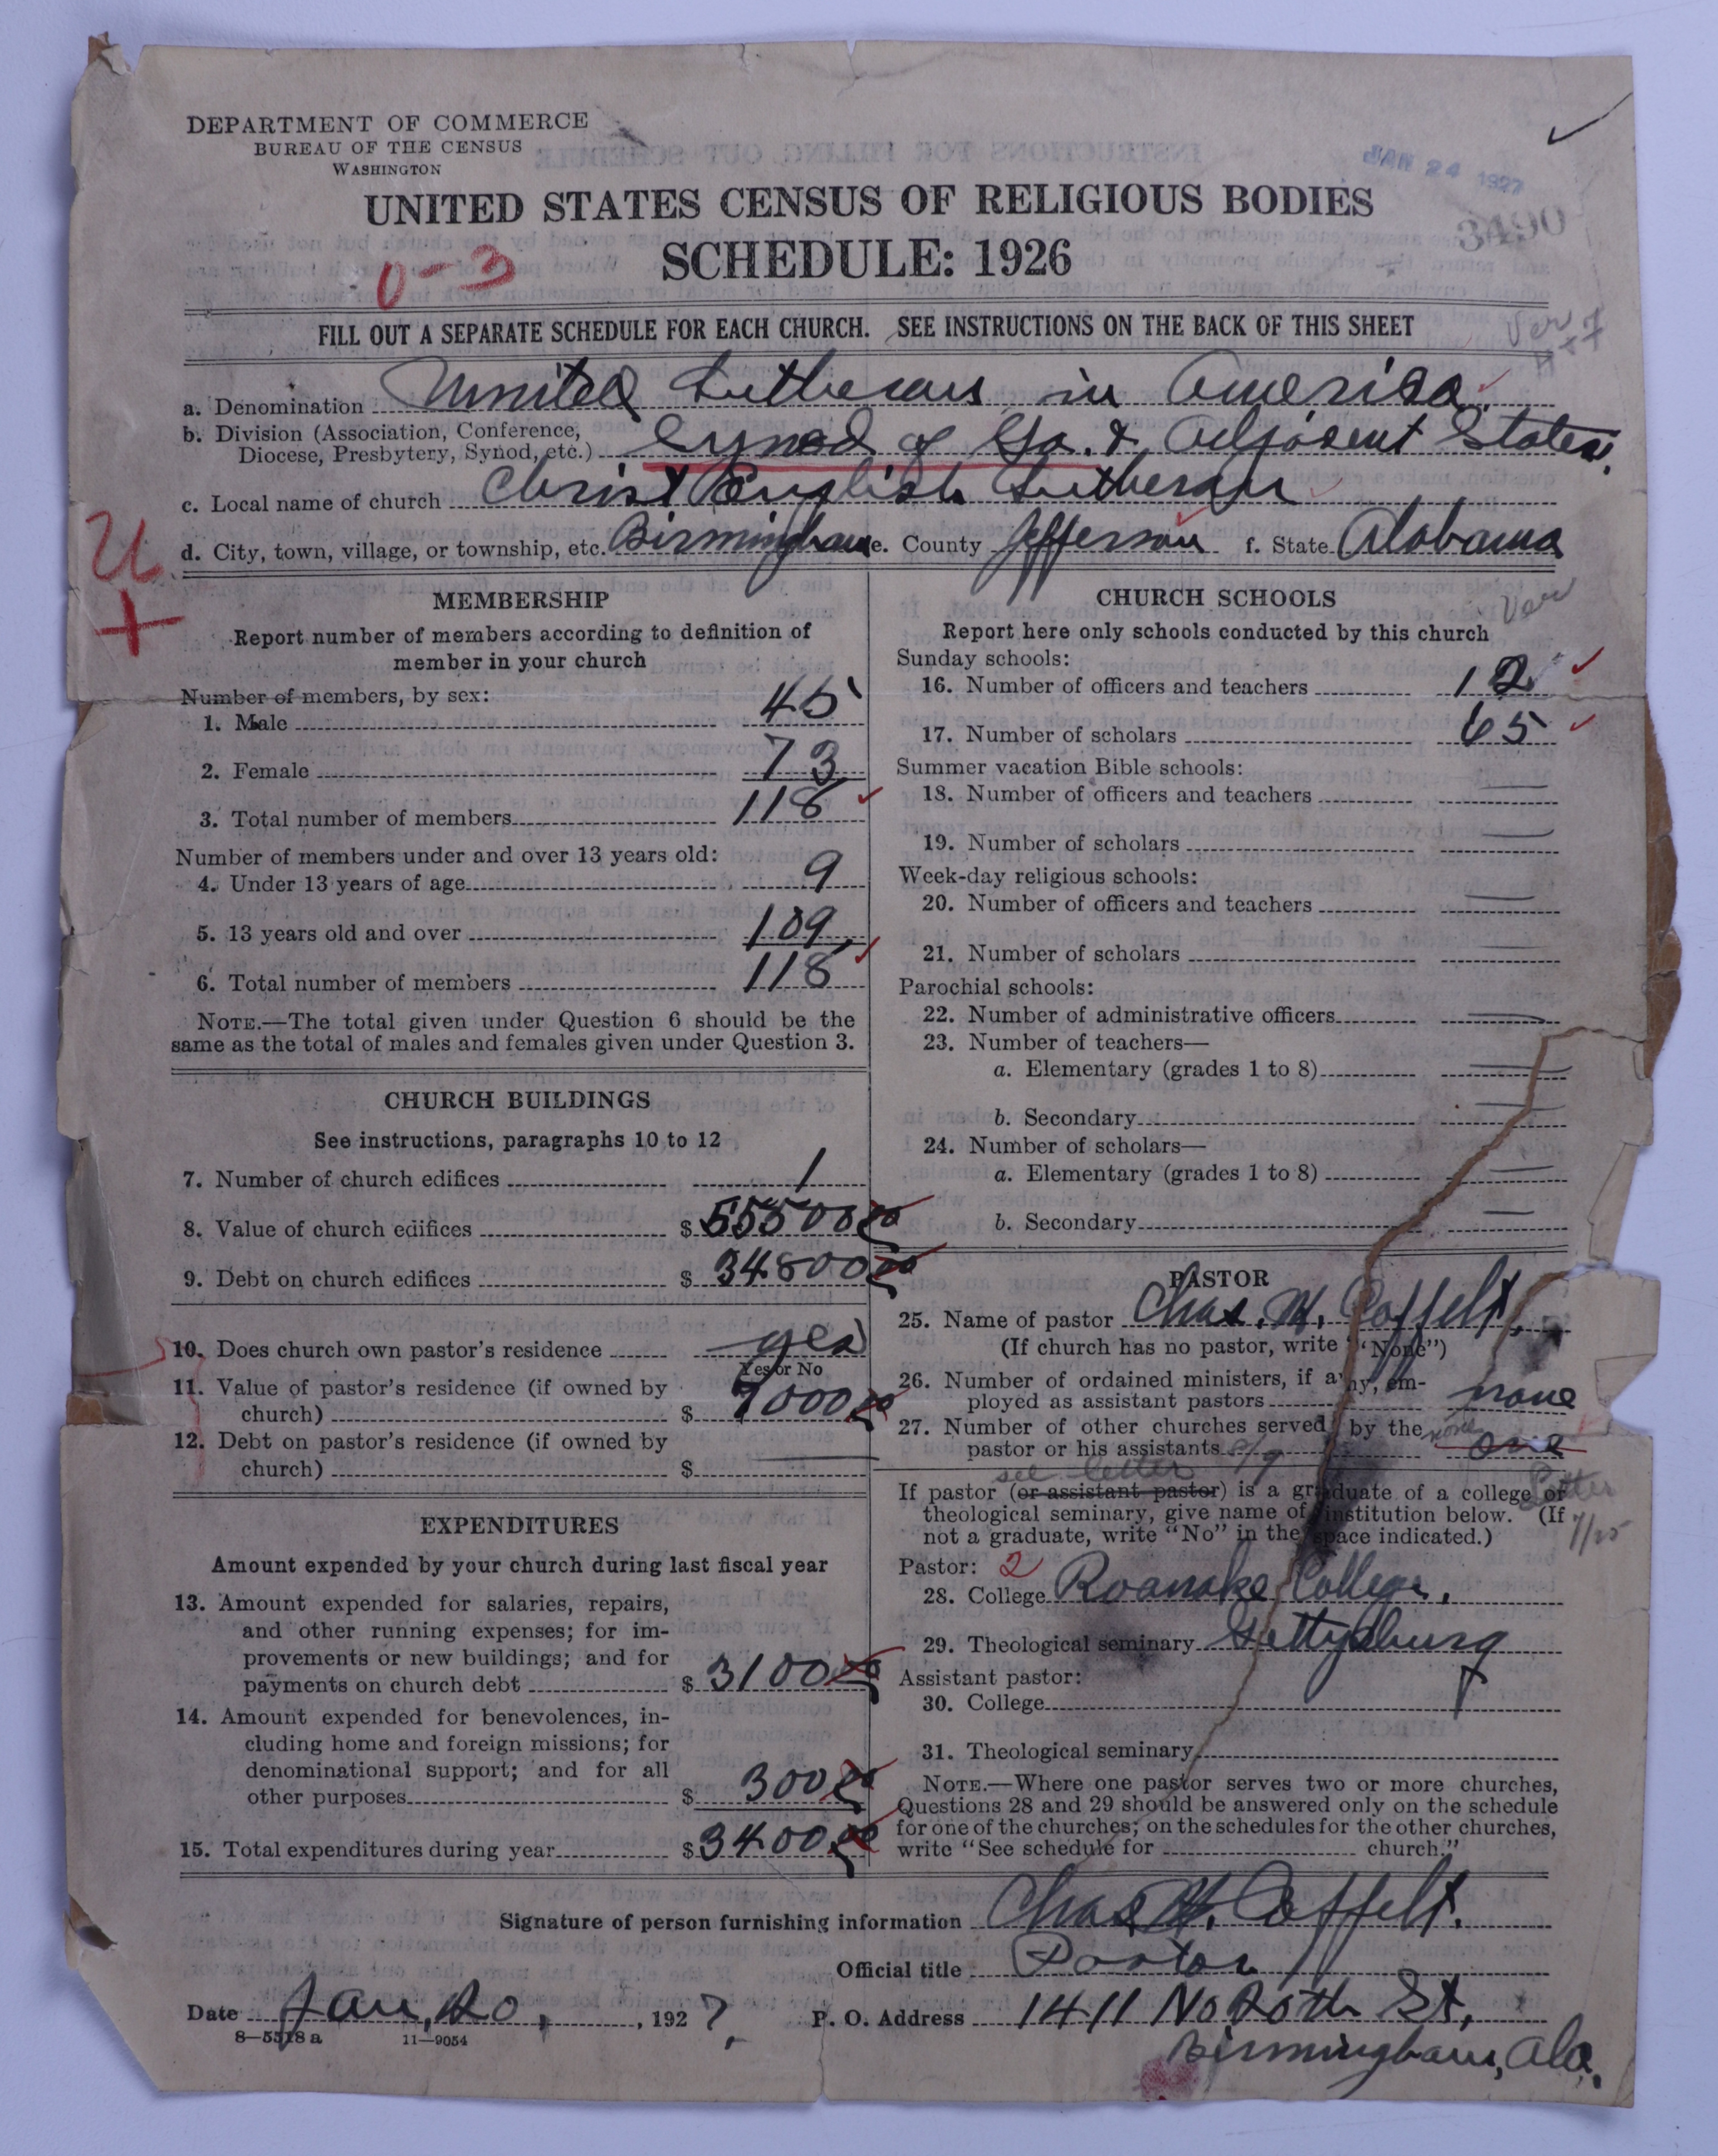 DEPARTMENT OF COMMERCE
BUREAU OF THE CENSUS
WASHINGTON
JAN 24 1927
UNITED STATES CENSUS OF RELIGIOUS BODIES
3490
SCHEDULE: 1926
0-3
FILL OUT A SEPARATE SCHEDULE FOR EACH CHURCH. SEE INSTRUCTIONS ON THE BACK OF THIS SHEET
Ver
a. Denomination United Lutheran in America
b. Division (Association, Conference,
Diocese, Presbytery, Synod, etc.) Synod of Ga. & Adjacent States.
c. Local name of church Christ English Lutheran
d. City, town, village, or township, etc. Birmingham e. County Jefferson f. State Alabama
U
+
MEMBERSHIP
Report number of members according to definition of
member in your church
Number of members, by sex:
1. Male 45
2. Female 73
3. Total number of members 118
Number of members under and over 13 years old:
4. Under 13 years of age 9
5. 13 years old and over 109
6. Total number of members 118
NOTE.—The total given under Question 6 should be the
same as the total of males and females given under Question 3.
CHURCH BUILDINGS
See instructions, paragraphs 10 to 12
7. Number of church edifices 1
8. Value of church edifices $ 55500 00
9. Debt on church edifices $ 34800 00
10. Does church own pastor's residence yes
Yes or No
11. Value of pastor's residence (if owned by
church) $ 7000 00
12. Debt on pastor's residence (if owned by
church) $ —
EXPENDITURES
Amount expended by your church during last fiscal year
13. Amount expended for salaries, repairs,
and other running expenses; for im-
provements or new buildings; and for
payments on church debt $ 3100 00
14. Amount expended for benevolences, in-
cluding home and foreign missions; for
denominational support; and for all
other purposes $ 300 00
15. Total expenditures during year $ 3400 00
CHURCH SCHOOLS
Ver
Report here only schools conducted by this church
Sunday schools:
16. Number of officers and teachers 12
17. Number of scholars 65
Summer vacation Bible schools:
18. Number of officers and teachers —
19. Number of scholars —
Week-day religious schools:
20. Number of officers and teachers —
21. Number of scholars —
Parochial schools:
22. Number of administrative officers —
23. Number of teachers—
a. Elementary (grades 1 to 8) —
b. Secondary —
24. Number of scholars—
a. Elementary (grades 1 to 8) —
b. Secondary —
PASTOR
25. Name of pastor Chas. W. Coffelt.
(If church has no pastor, write "None")
26. Number of ordained ministers, if any, em-
ployed as assistant pastors none
27. Number of other churches served by the none
pastor or his assistants one
see letter
If pastor (or assistant pastor) is a graduate of a college or
theological seminary, give name of institution below. (If
not a graduate, write "No" in the space indicated.)
Letter
7/25
Pastor: 2
28. College Roanoke College,
29. Theological seminary Gettysburg
Assistant pastor:
30. College
31. Theological seminary
NOTE.—Where one pastor serves two or more churches,
Questions 28 and 29 should be answered only on the schedule
for one of the churches; on the schedules for the other churches,
write "See schedule for church."
Signature of person furnishing information Chas. W. Coffelt.
Official title Pastor
Date Jan, 20, 1927. P. O. Address 1411 No 20th St,
8—5518 a 11—9054
Birmingham, Ala.